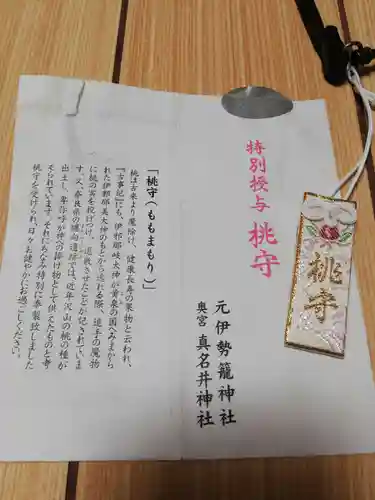 特別授与 桃守
元伊勢籠神社
奥宮 真名井神社
「桃守(ももまもり)」
桃は古来より魔除け、健康長寿の果物と云われ、
『古事記』にも、伊邪那岐大神が黄泉の国へみまから
れた伊邪那美大神のもとから逃れる際、追手の魔物
に桃の実を投げつけ、退散させたことが記されていま
す。又、奈良県の纏向遺跡では、近年沢山の桃の種が
出土し、卑弥呼が神への捧げ物として供えたものと考
えられています。それにちなみ特別に奉製致しました
桃守を受けられ、日々お健やかにお過ごしください。
桃守